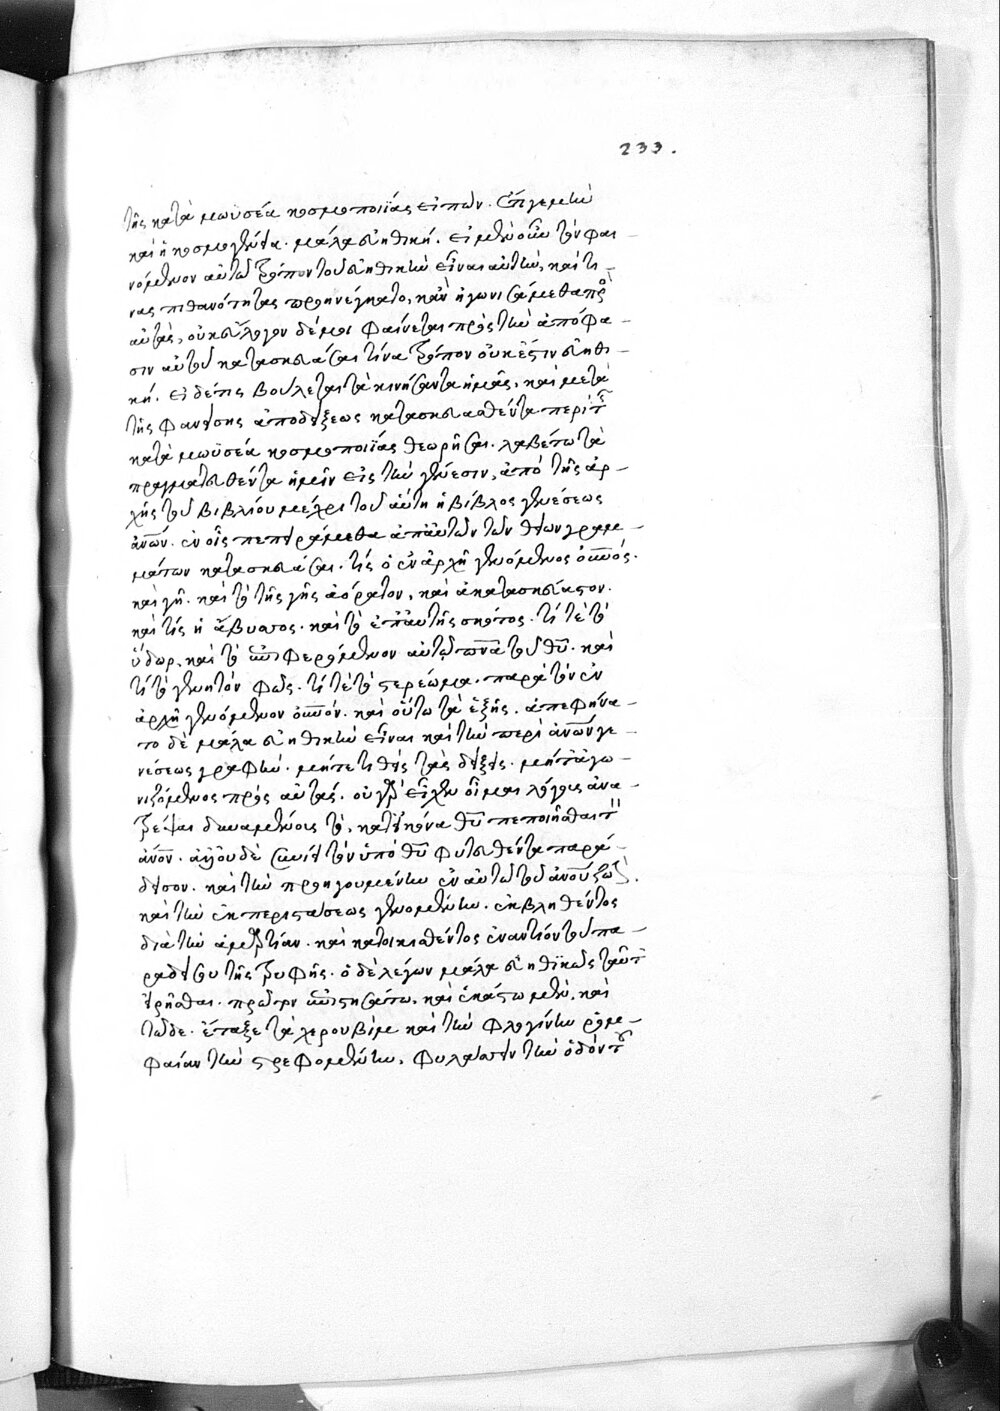 233.
τῆς κατὰ μωϋσέα κοσμοποιΐας εἰπών. ἔτι γε μὴν
καὶ ἡ κοσμογένεια. μάλα εὐηθική. εἰ μὲν οὖν τὸν φαι-
νόμενον αὐτῷ τρόπον τοῦ εὐηθικὴν εἶναι αὐτήν, καί τι-
νας πιθανότητας προηνέγκατο, κἂν ἠγωνισάμεθα πρὸς
αὐτάς, οὐκ εὔλογον δέ μοι φαίνεται πρὸς τὴν ἀπόφα-
σιν αὐτοῦ κατασκευάσαι τίνα τρόπον οὐκ ἔστιν εὐηθι-
κή. εἰ δέ τις βούλεται τὰ κινήσαντα ἡμᾶς, καὶ μετὰ
τῆς φανείσης ἀποδείξεως κατασκευασθέντα περὶ τ
κατὰ μωϋσέα κοσμοποιΐας θεωρῆσαι. λαβέτω τὰ
πραγματευθέντα ἡμῖν εἰς τὴν γένεσιν, ἀπὸ τῆς ἀρ-
χῆς τοῦ βιβλίου μέχρι τοῦ αὕτη ἡ βίβλος γενέσεως
ἀνων. ἐν οἷς πεπειράμεθα ἀπ' αὐτῶν τῶν θείων γραμ-
μάτων κατασκευάσαι. τίς ὁ ἐν ἀρχῇ γενόμενος οὐνός.
καὶ γῆ. καὶ τὸ τῆς γῆς ἀόρατον, καὶ ἀκατασκεύαστον.
καὶ τίς ἡ ἄβυσσος. καὶ τὸ ἐπ' αὐτῆς σκότος. τί τε τὸ
ὕδωρ, καὶ τὸ ἐπιφερόμενον αὐτῷ πνα τοῦ θυ. καὶ
τί τὸ γενητὸν φῶς. τί τε τὸ στερέωμα. παρὰ τὸν ἐν
ἀρχῇ γενόμενον οὐνόν. καὶ οὕτω τὰ ἑξῆς. ἀπεφήνα-
το δὲ μάλα εὐηθικὴν εἶναι καὶ τὴν περὶ ἀνων γε-
νέσεως γραφήν. μήτε τιθεὶς τὰς λέξεις. μήτ' ἀγω-
νιζόμενος πρὸς αὐτάς. οὐ γὰρ εἶχεν οἶμαι λόγους ἀνα-
τρέψαι δυναμένους τό, κατ' εἰκόνα θυ πεποιῆσθαι τ
ἀνον. ἀλλ' οὐδὲ συνιεὶ τὸν ὑπὸ θυ φυτευθέντα παρά-
δεισον. καὶ τὴν προηγουμένην ἐν αὐτῷ τοῦ ἀνου ζωήν.
καὶ τὴν ἐκ περιστάσεως γενομένην. ἐκβληθέντος
διὰ τὴν ἁμαρτίαν. καὶ κατοικισθέντος ἐναντίον τοῦ πα-
ραδείσου τῆς τρυφῆς. ὁ δὲ λέγων μάλα εὐηθικῶς ταῦτ
εἰρῆσθαι. πρῶτον ἐπιστησάτω. καὶ ἑκάστῳ μέν. καὶ
τῷδε. ἔταξε τὰ χερουβὶμ καὶ τὴν φλογίνην ῥομ-
φαίαν τὴν στρεφομένην, φυλάσσειν τὴν ὁδὸν τ